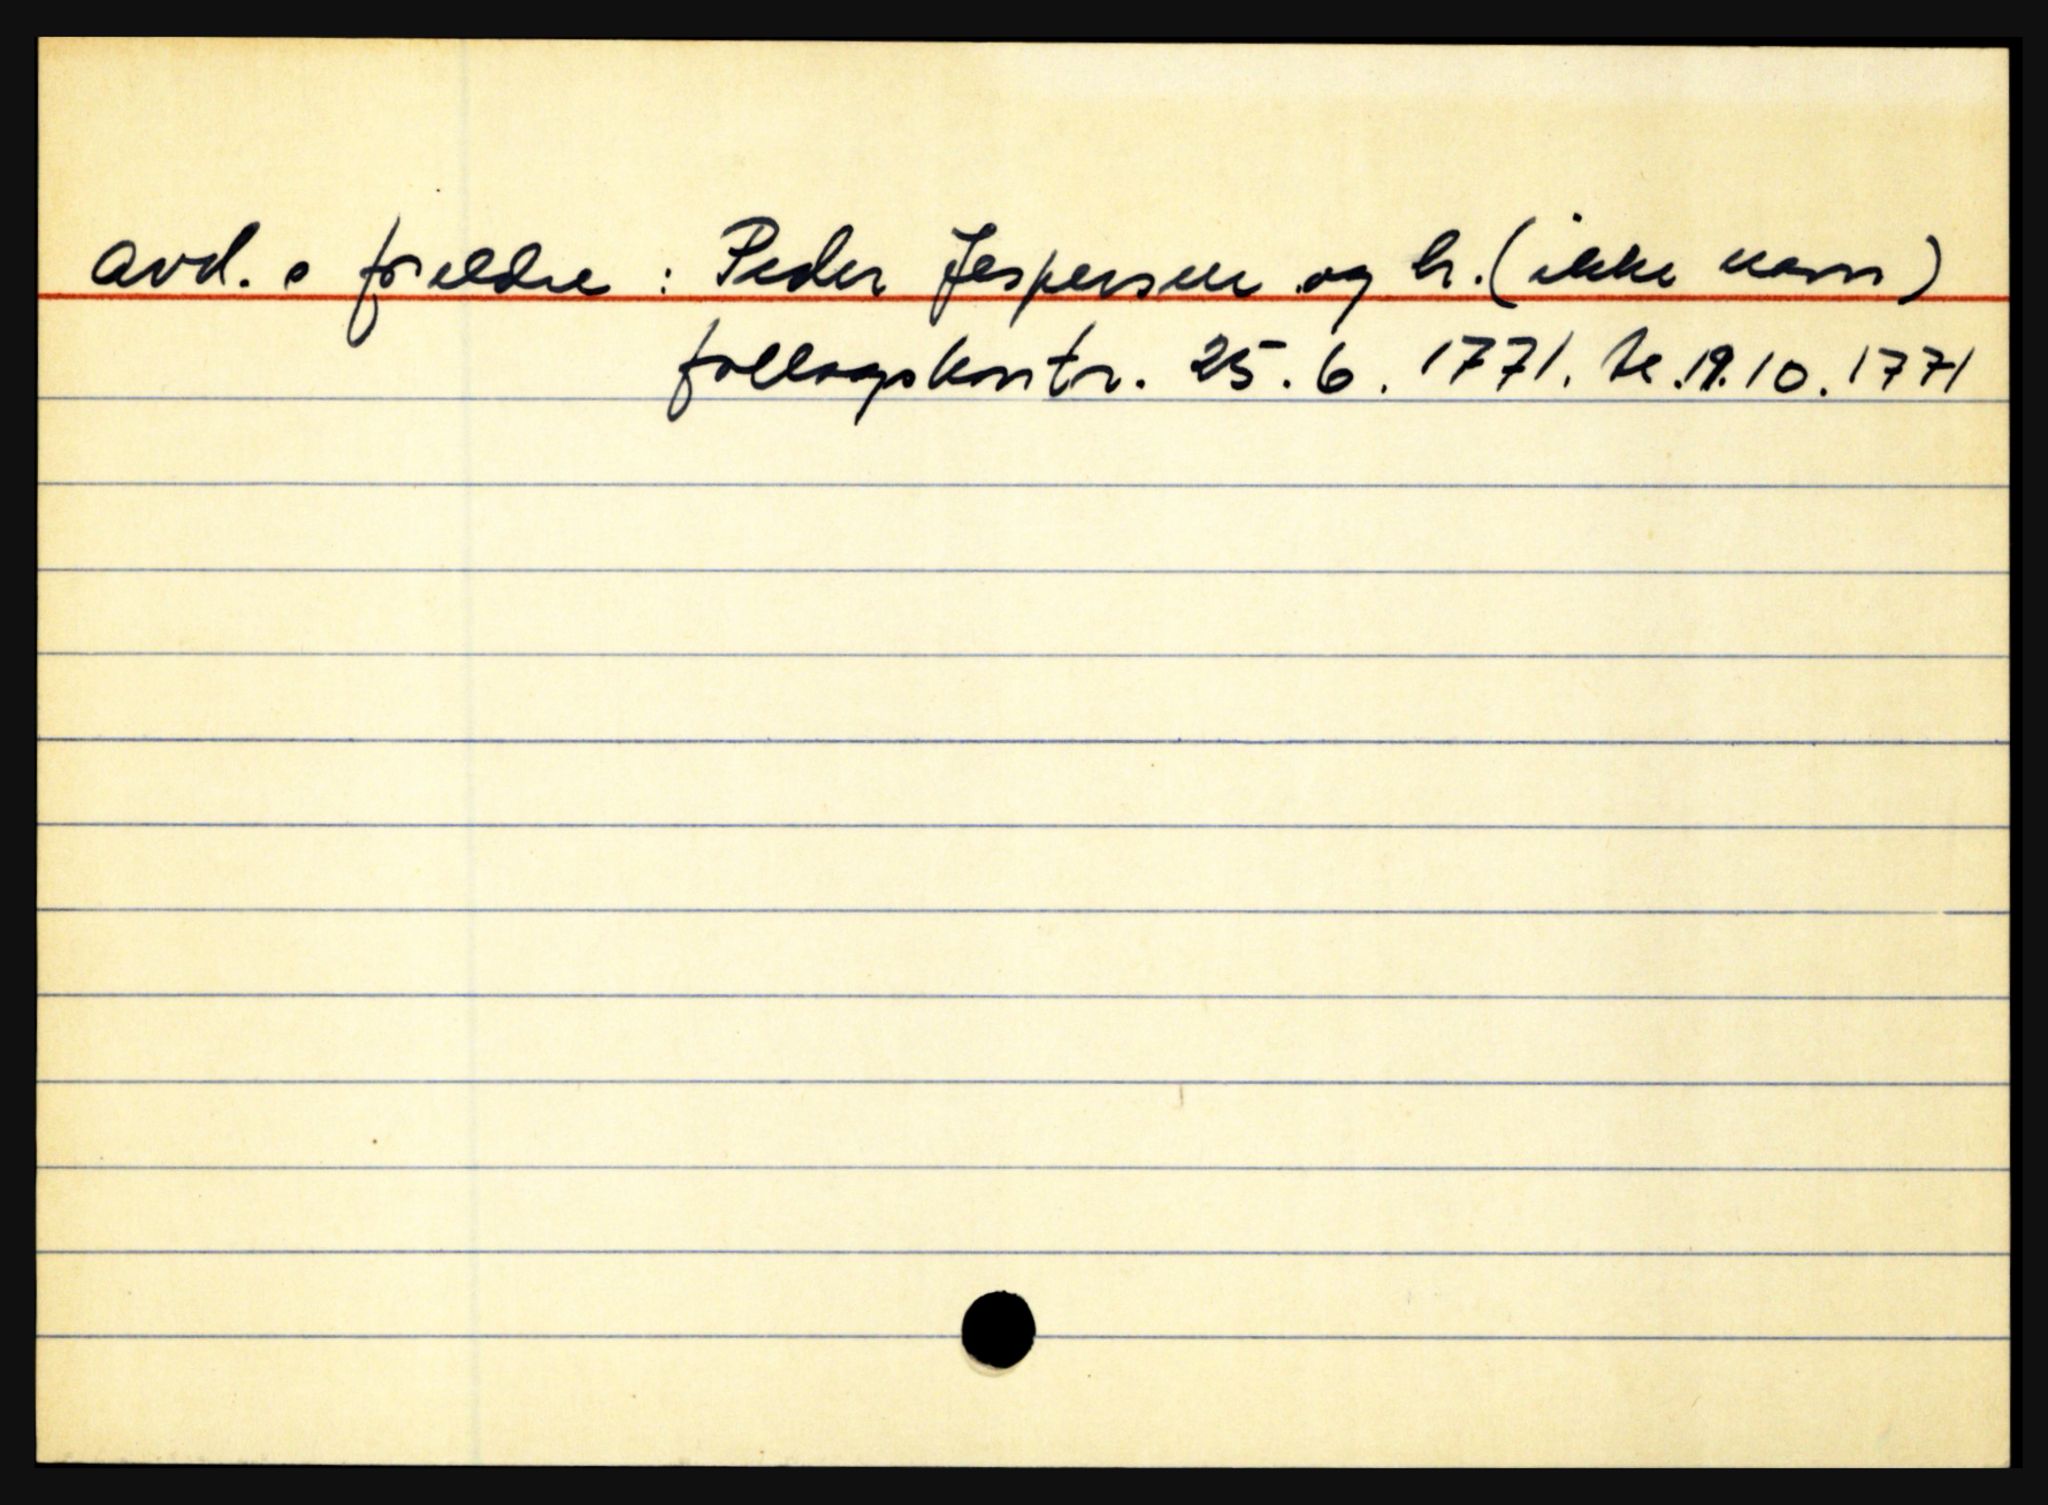 avd. s foreldre : Peder Jespersen og h. (ikke navn)
føllagskontr. 25.6.1771. te. 19.10.1771